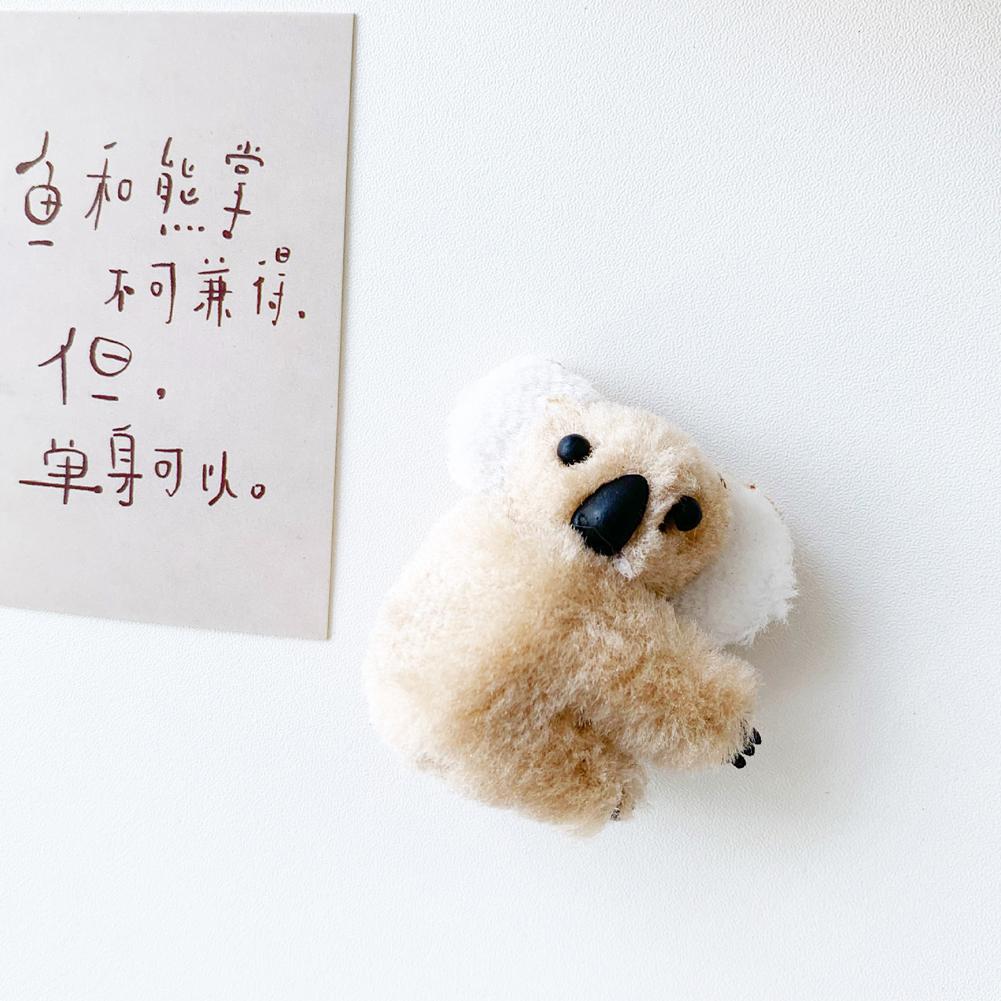 鱼和熊掌
不可兼得.
但,
单身可以。